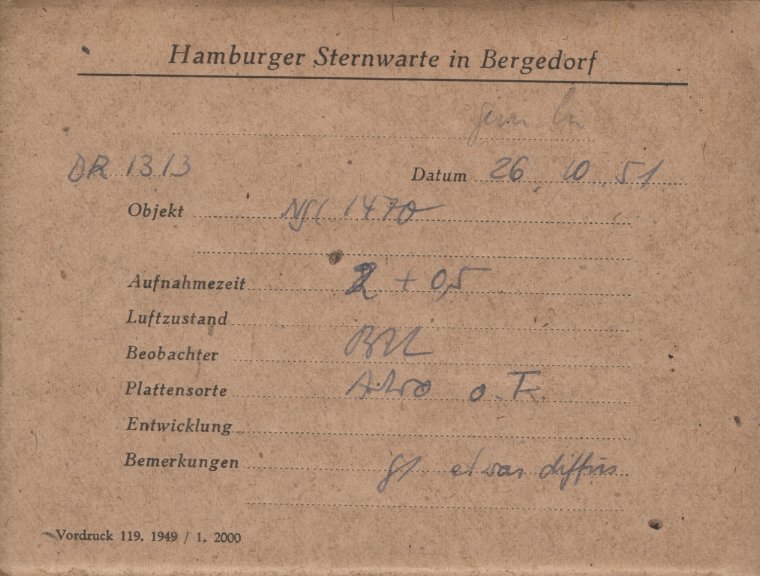 Hamburger Sternwarte in Bergedorf
DR 1313 Datum 26.10.51
Objekt NGC 1470
Aufnahmezeit 2 + 0,5
Luftzustand
Beobachter
Plattensorte Astro o. F.
Entwicklung
Bemerkungen etwas diffus
Vordruck 119. 1949 / 1. 2000